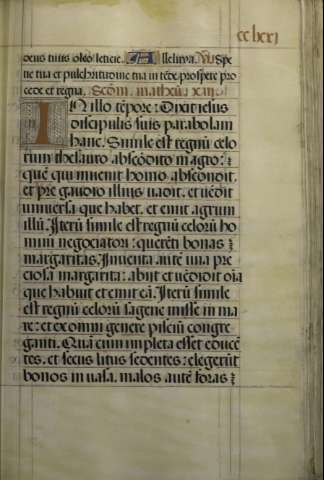 cclxxi
deus tuus oleo leticie. Alleluya. V. Spe
cie tua et pulchritudine tua intẽde prospere pro
cede et regna. Scõm. matheũ xiii
IN illo tẽpore: Dixit iesus
discipulis suis parabolam
hanc. Simile est regnũ celo
rum thesauro abscõdito in agro:
quẽ qui inuenit homo abscõdit.
et pre gaudio illius uadit. et uẽdit
uniuersa que habet. et emit agrum
illũ. Iterũ simile est regnũ celorũ ho
mini negociatori: querẽti bonas
margaritas. Inuenta autẽ una pre
ciosa margarita: abiit et uẽdidit oĩa
que habuit et emit eã. Iterũ simile
est regnũ celorũ sagene misse in ma
re: et ex omni genere pisciũ congre
ganti. Quã cum impleta esset educẽ
tes. et secus litus sedentes: elegerũt
bonos in uasa. malos autẽ foras